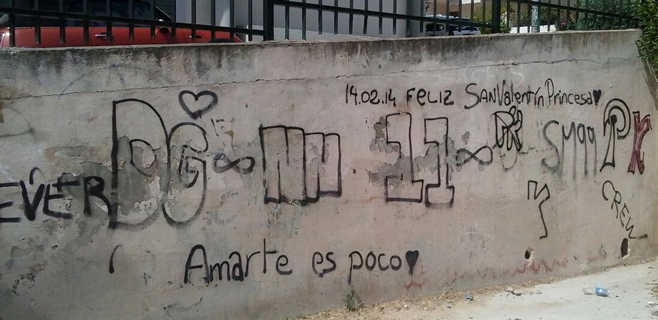 14.02.14 FELIZ SANValentín Princesa♥
EVER DG ∞ NN . 11 ∞ SM99 PK
CREW
Amarte es poco♥